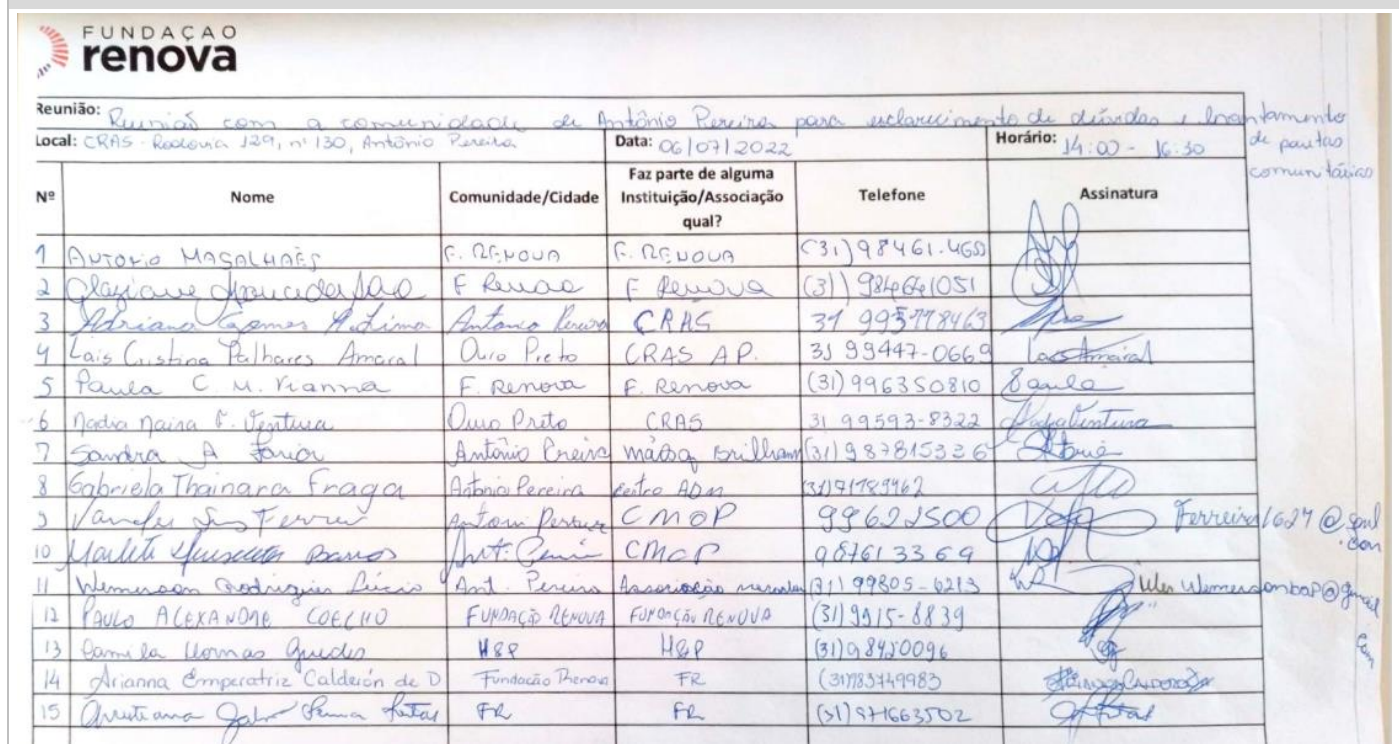 FUNDAÇÃO
renova
Reunião: Reunião com a comunidade de Antônio Pereira para esclarecimento de dúvidas e levantamento de pautas comunitárias
Local: CRAS - Rodovia 129, nº 130, Antônio Pereira Data: 06/07/2022 Horário: 14:00 - 16:30
Nº Nome Comunidade/Cidade Faz parte de alguma Instituição/Associação qual? Telefone Assinatura
1 ANTONIO MAGALHAES F. RENOVA F. RENOVA (31) 98461-4650
2 F Renova F Renova (31) 984641051
3 Adriana Gomes A. Lima Antonio Pereira CRAS 31 995778463
4 Lais Cristina Palhares Amaral Ouro Preto CRAS AP. 31 99447-0669 Lais Amaral
5 Paula C. M. Vianna F. Renova F. Renova (31) 996350810 Paula
6 Nadia Naira F. Ventura Ouro Preto CRAS 31 99593-8322 Nadia Ventura
7 Sandra A Antônio Pereira (31) 987815336
8 Gabriela Thainara Fraga Antonio Pereira Centro ADM (31) 971789962
9 CMOP 99622500 Ferreira1627@gmail.com
10 Marlete Barros Ant. CMOP 987613369
11 Wemerson Rodrigues Lúcio Ant. Pereira Associação (31) 99805-6213 Wemersonbap@gmail.com
12 PAULO ALEXANDRE COELHO FUNDAÇÃO RENOVA FUNDAÇÃO RENOVA (31) 9915-8839
13 Camila Guedes H&P H&P (31) 98920096
14 Arianna Emperatriz Calderón de D Fundação Renova FR (31) 983749983
15 FR FR (31) 971663502